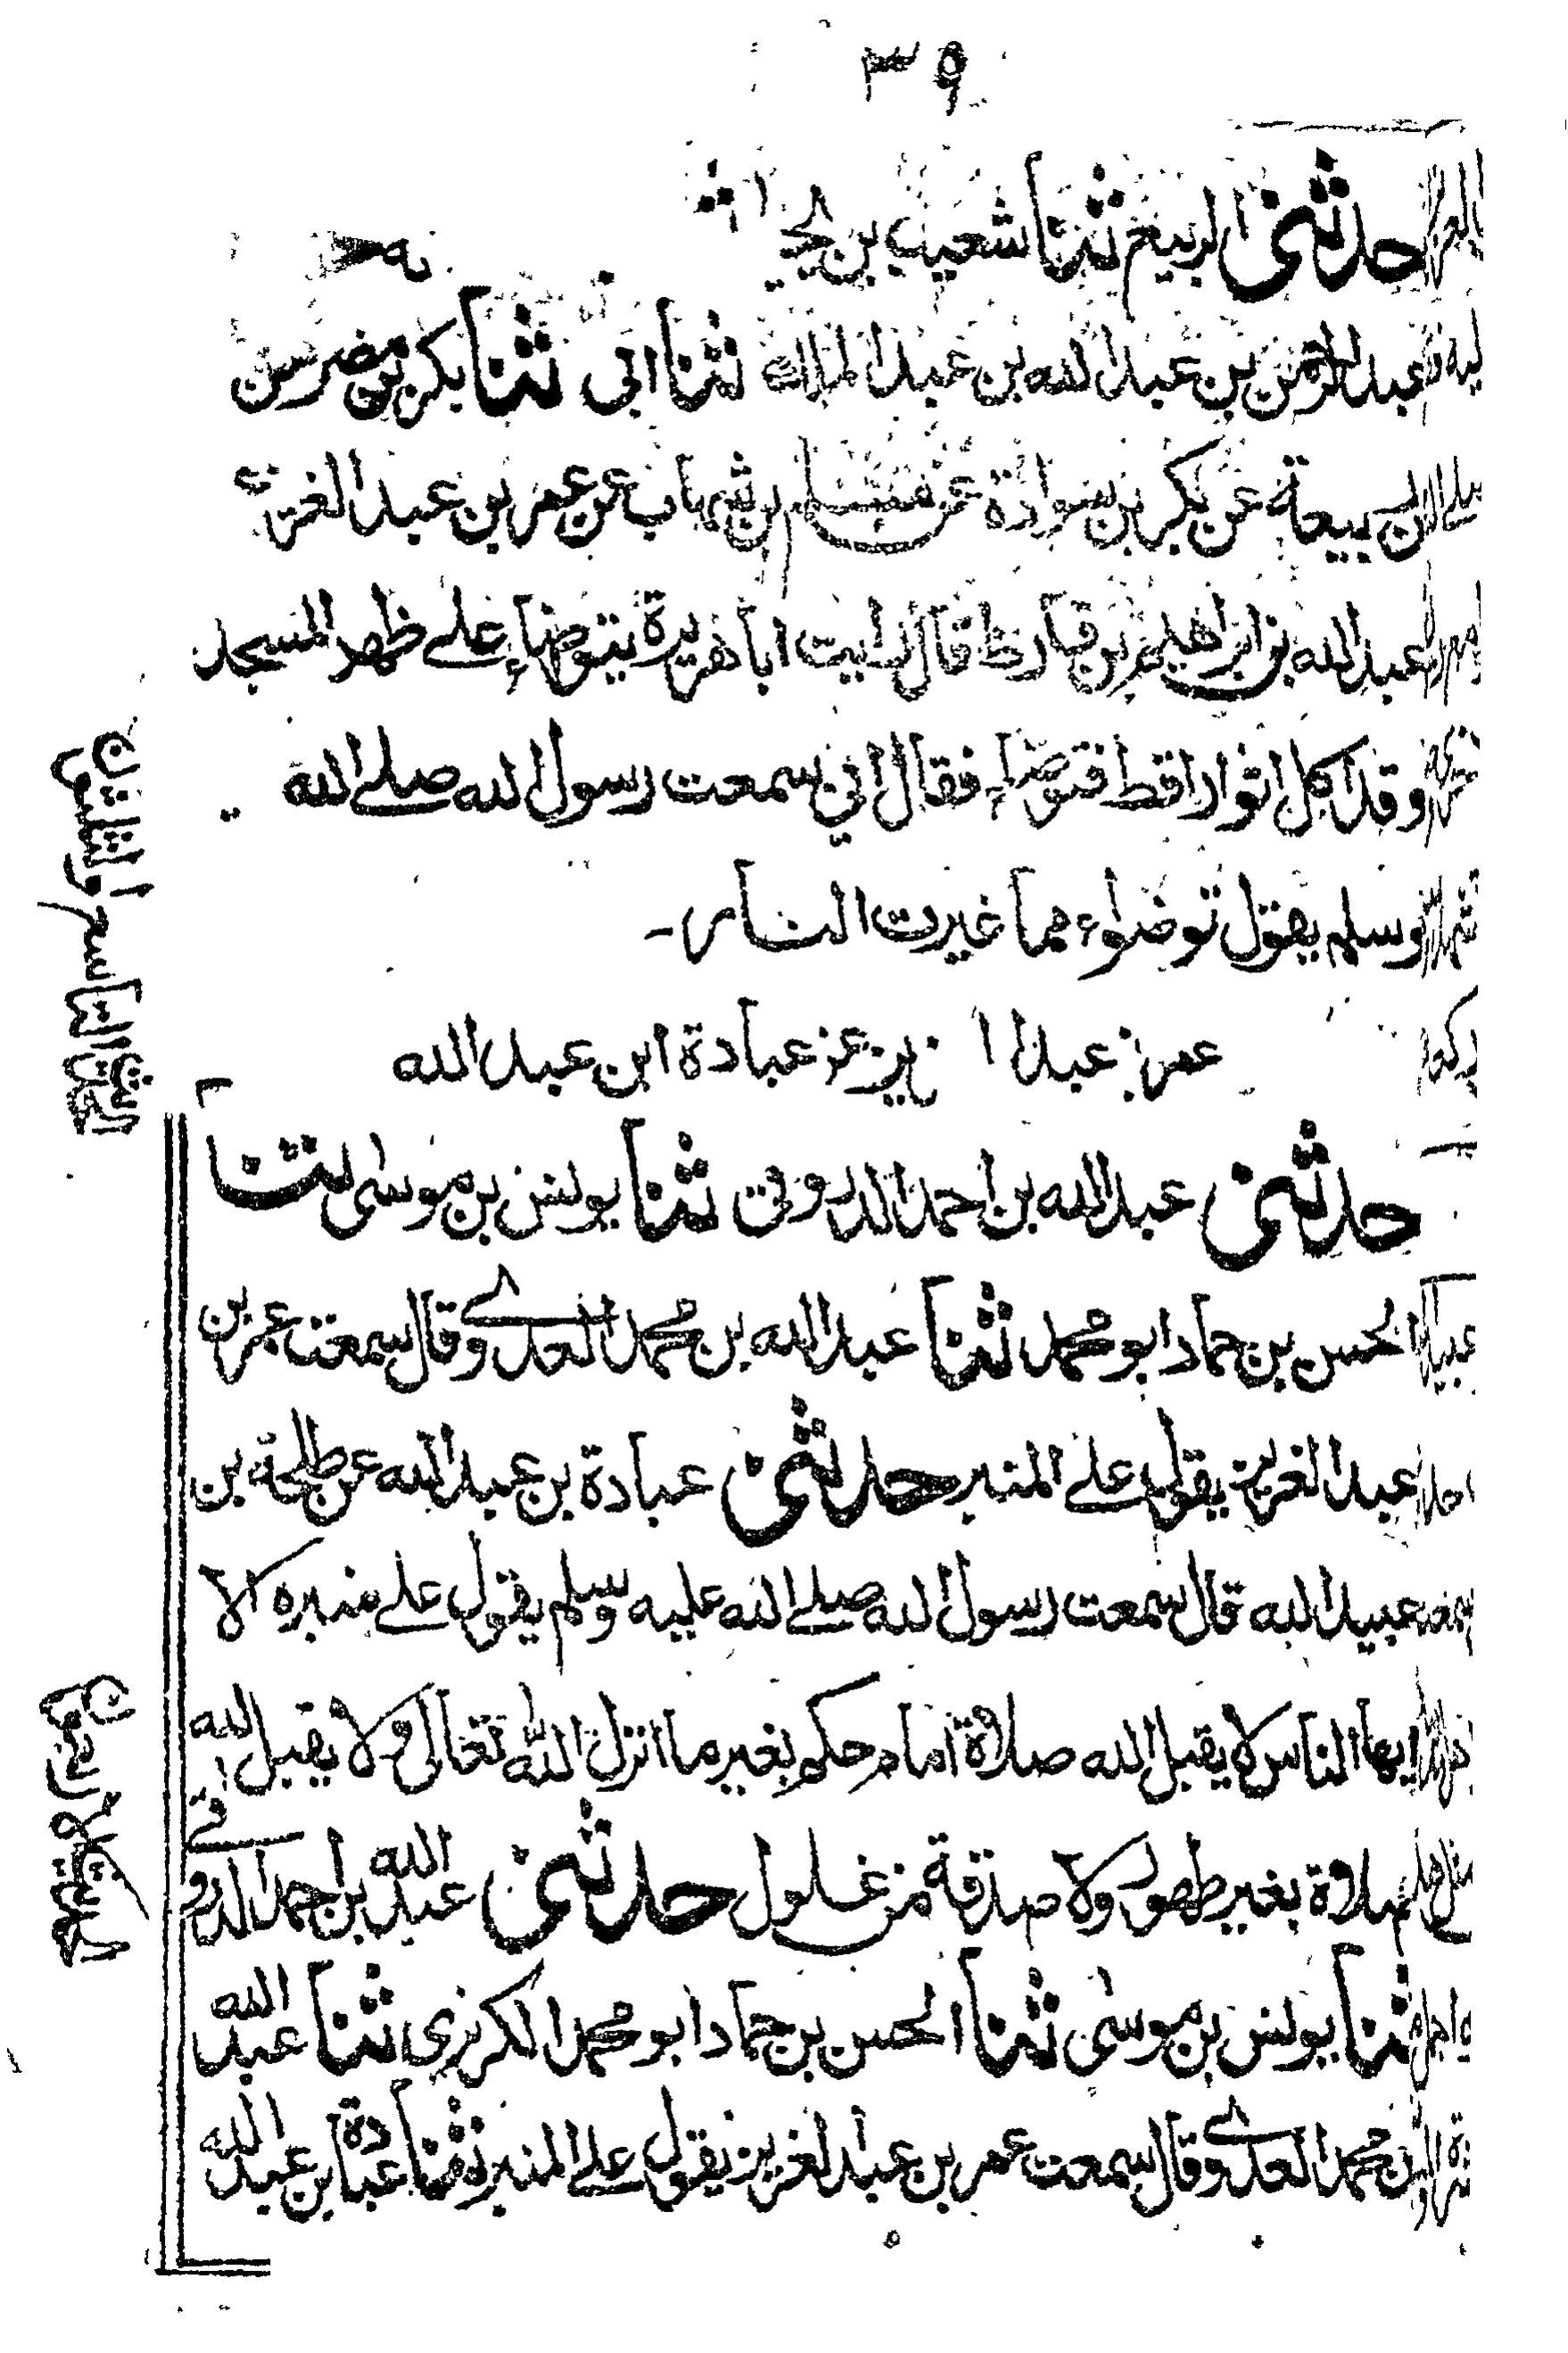 ٣٩
حدثنی الربیع ثنا شعیب بن
عبد الرحمن بن عبد الله بن عبد الملك ثنا ابی ثنا بکر بن مضر
عن بکر بن سوادة عن بن شهاب عن عمر بن عبد العزیز
عبد الله بن ابراهیم بن قارظ قال رایت ابا هریرة یتوضاء علے ظهر المسجد
وقد اکل اثوار اقط فتوضاء فقال انی سمعت رسول الله صلے الله
وسلم یقول توضاوء مما غیرت النار۔
عمر بن عبد ا زیز عن عبادة ابن عبد الله
حدثنی عبد الله بن احمد الدورقی ثنا یونس بن موسی ثنا
الحسن بن حماد ابو محمد ثنا عبد الله بن محمد العدوے قال سمعت عمر بن
عبد العزیز یقول علے المنبر حدثنی عبادة بن عبد الله عن طلحة بن
عبید الله قال سمعت رسول الله صلے الله علیه وسلم یقول علے منبره الا
ایها الناس لا یقبل الله صلاة امام حکم بغیر ما انزل الله تعالی ولا یقبل الله
صلاة بغیر طهور ولا صدقة من غلول حدثنی عبد الله بن احمد الدورقے
ثنا یونس بن موسی ثنا الحسن بن حماد ابو محمد الکرزی ثنا عبد الله
بن محمد العدوے قال سمعت عمر بن عبد العزیز یقول علے المنبر ثنا عبادة بن عبد الله
الحدیث التاسع والثلثون
الحدیث الاربعون